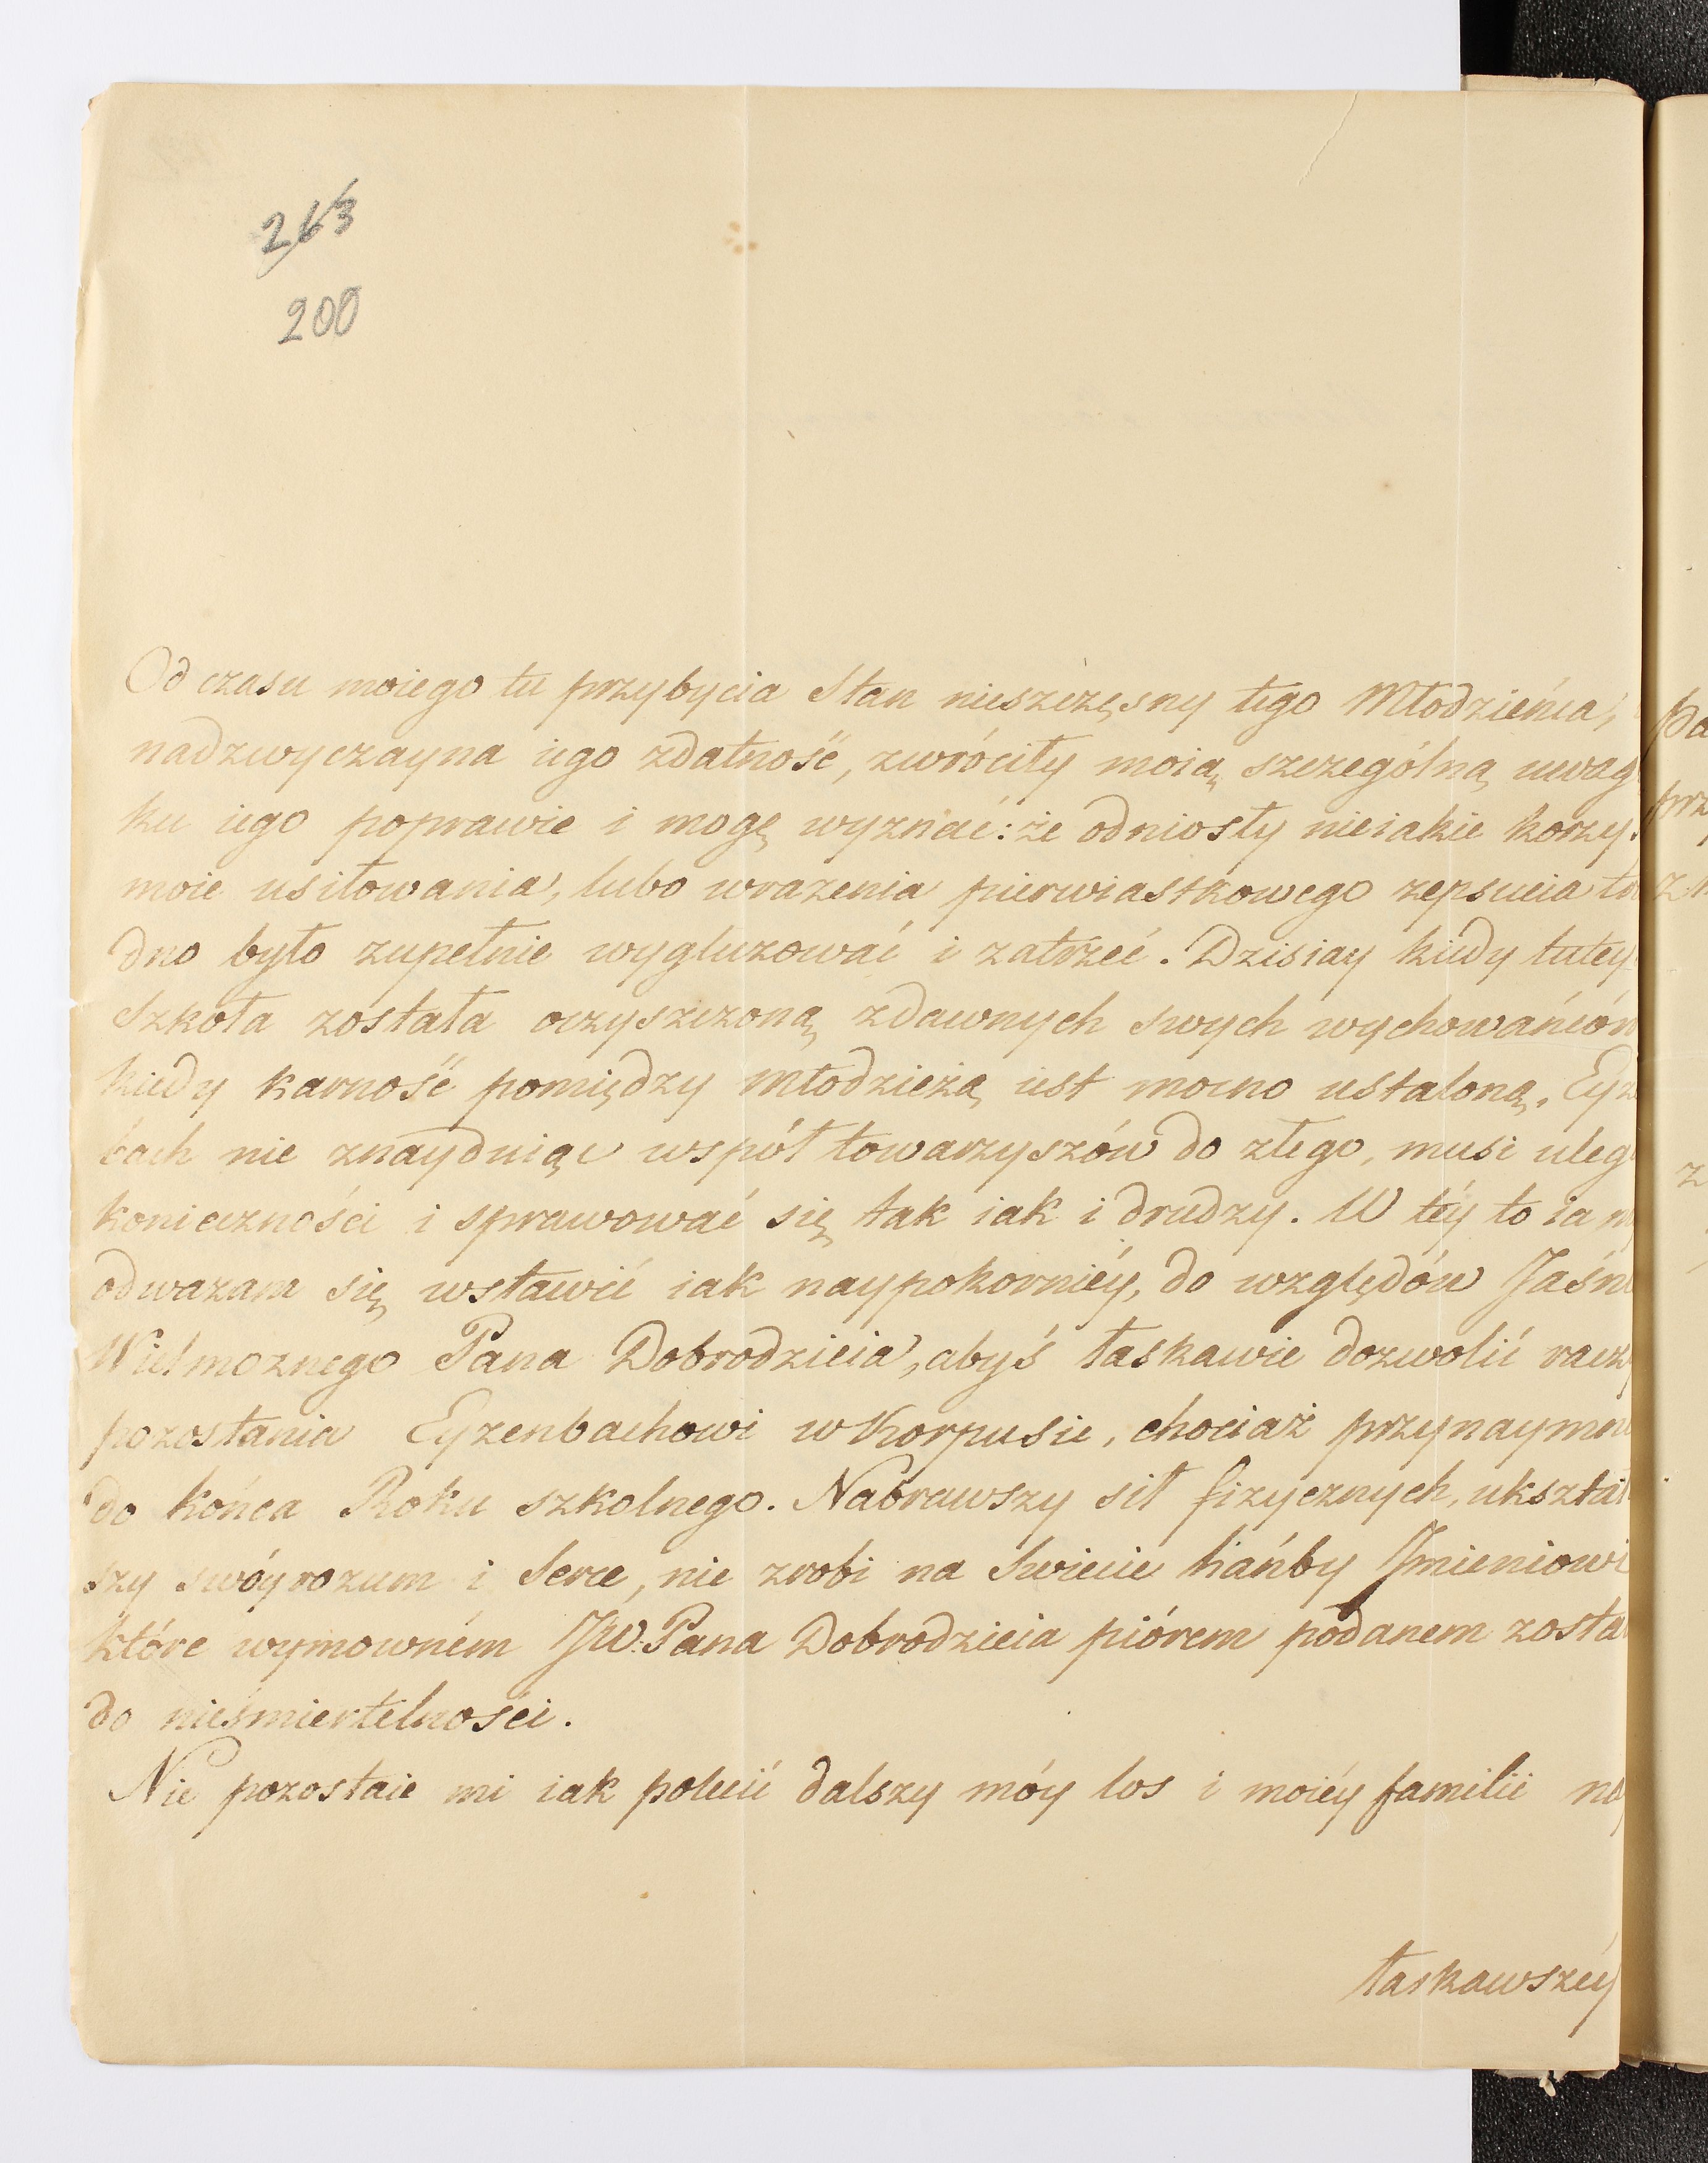 263
200
Od czasu moiego tu przybycia Stan nieszczęsny tego Młodzieńca,
nadzwyczayna iego zdatność, zwróciły moią szczególną uwag
ku iego poprawie i mogę wyznać: że odniosły nieiakie korzy
moie usiłowania, lubo wrazenia pierwiastkowego zepsucia
dno było zupełnie wygluzować i zatrzeć. Dzisiay kiedy tutey
Szkoła została oczyszczoną z dawnych swych wychowańców
kiedy karność pomiędzy Młodzieżą iest mocno ustaloną, Eyze
bach nie znayduiąc współ towarzyszów do złego, musi uleg
konieczności i sprawować się tak iak i drudzy. W téy to ia
odwazam się wstawić iak naypokorniéy, do względów Jaśn
Wielmoznego Pana Dobrodzieia, abyś łaskawie dozwolić racz
pozostania Eyzenbachowi w Korpusie, chociaż przynaymn
do końca Roku szkolnego. Nabrawszy sił fizycznych, ukształ
szy swóy rozum i Serce, nie zrobi na Swiecie hańby Jmieniowi
które wymowném JW. Pana Dobrodzieia piórem podanem zosta
do nieśmiertelności.
Nie pozostaie mi iak polecić dalszy móy los i moiéy familii na
łaskawszéy